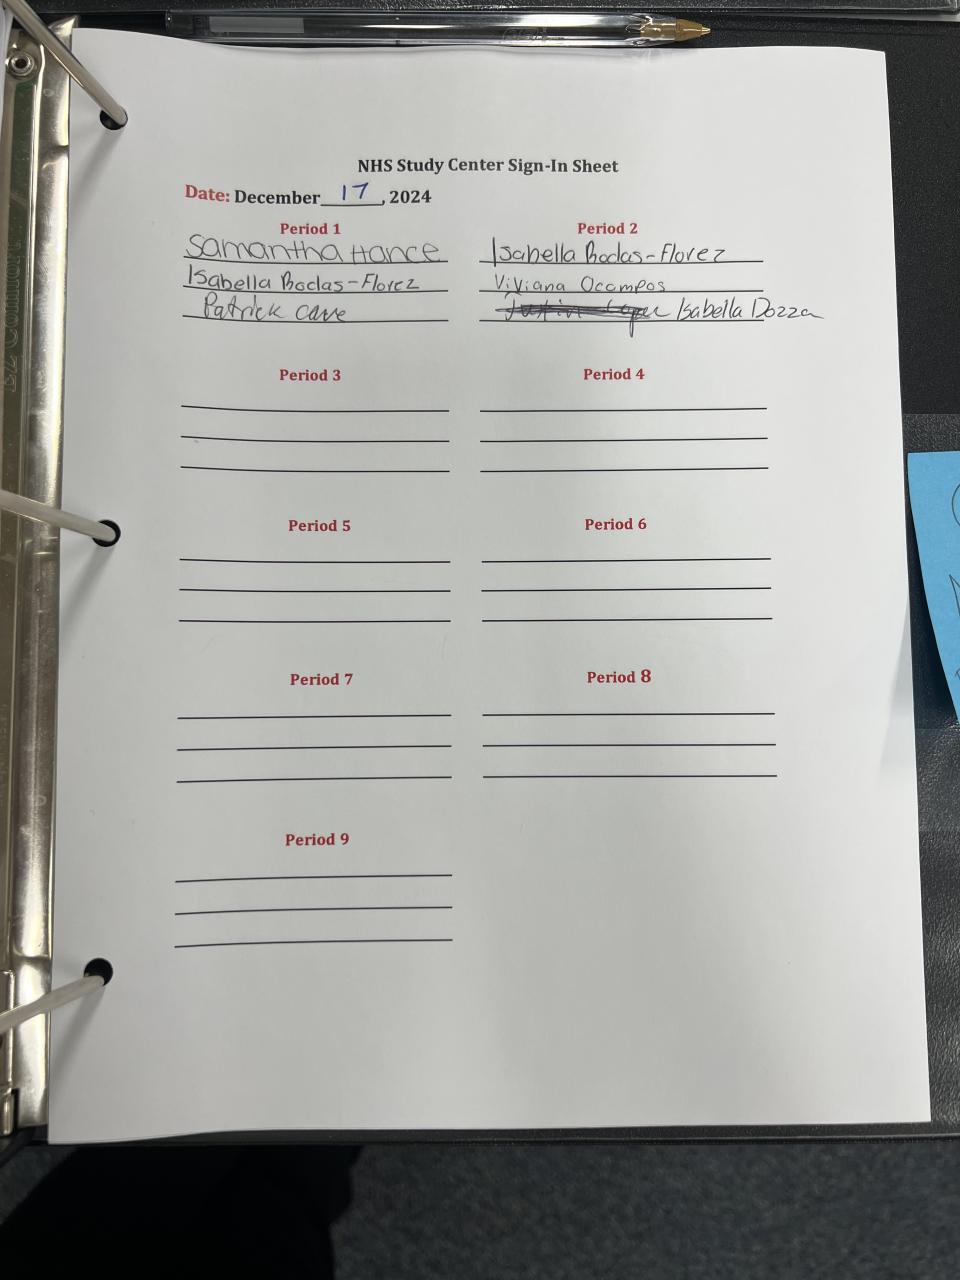 NHS Study Center Sign-In Sheet
Date: December 17, 2024
Period 1
Samantha Hance
Isabella Boclas-Florez
Patrick Cave
Period 2
Isabella Boclas-Florez
Viviana Ocampos
Isabella Dozza
Period 3
Period 4
Period 5
Period 6
Period 7
Period 8
Period 9